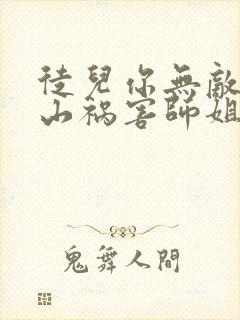 徒兒你無敵
山禍害師姐
鬼舞人間